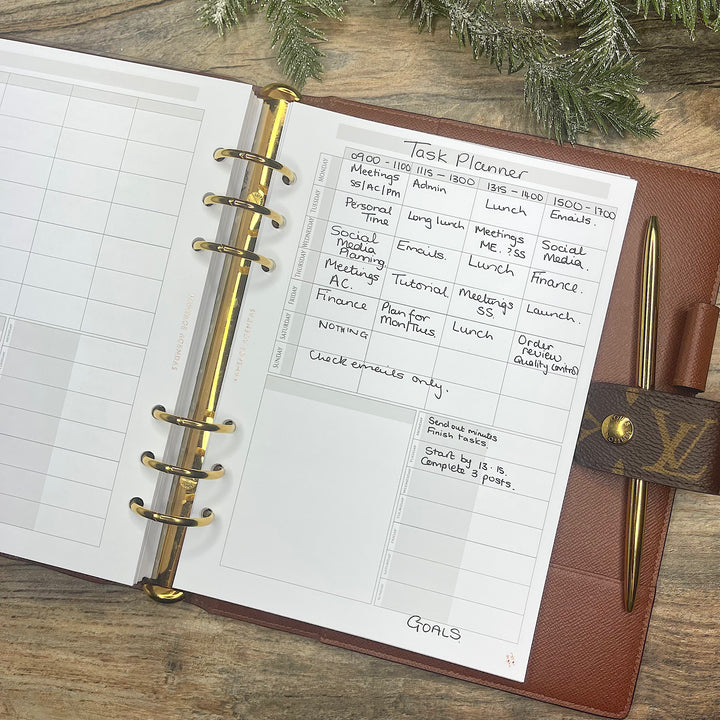 Task Planner
0900 - 1100 1115 - 1300 1315 - 1400 1500 - 1700
MONDAY
Meetings SS/AC/PM
Admin
Lunch
Emails.
TUESDAY
Personal Time
Long lunch
Meetings ME. ?SS
Social Media.
WEDNESDAY
Social Media Planning.
Emails.
Lunch
Finance.
THURSDAY
Meetings AC.
Tutorial.
Meetings SS.
Launch.
FRIDAY
Finance
Plan for Mon/Tues.
Lunch
Order review Quality control
SATURDAY
NOTHING
SUNDAY
Check emails only.
Send out minutes
Finish tasks.
Start by 13.15.
Complete 3 posts.
GOALS.
LV